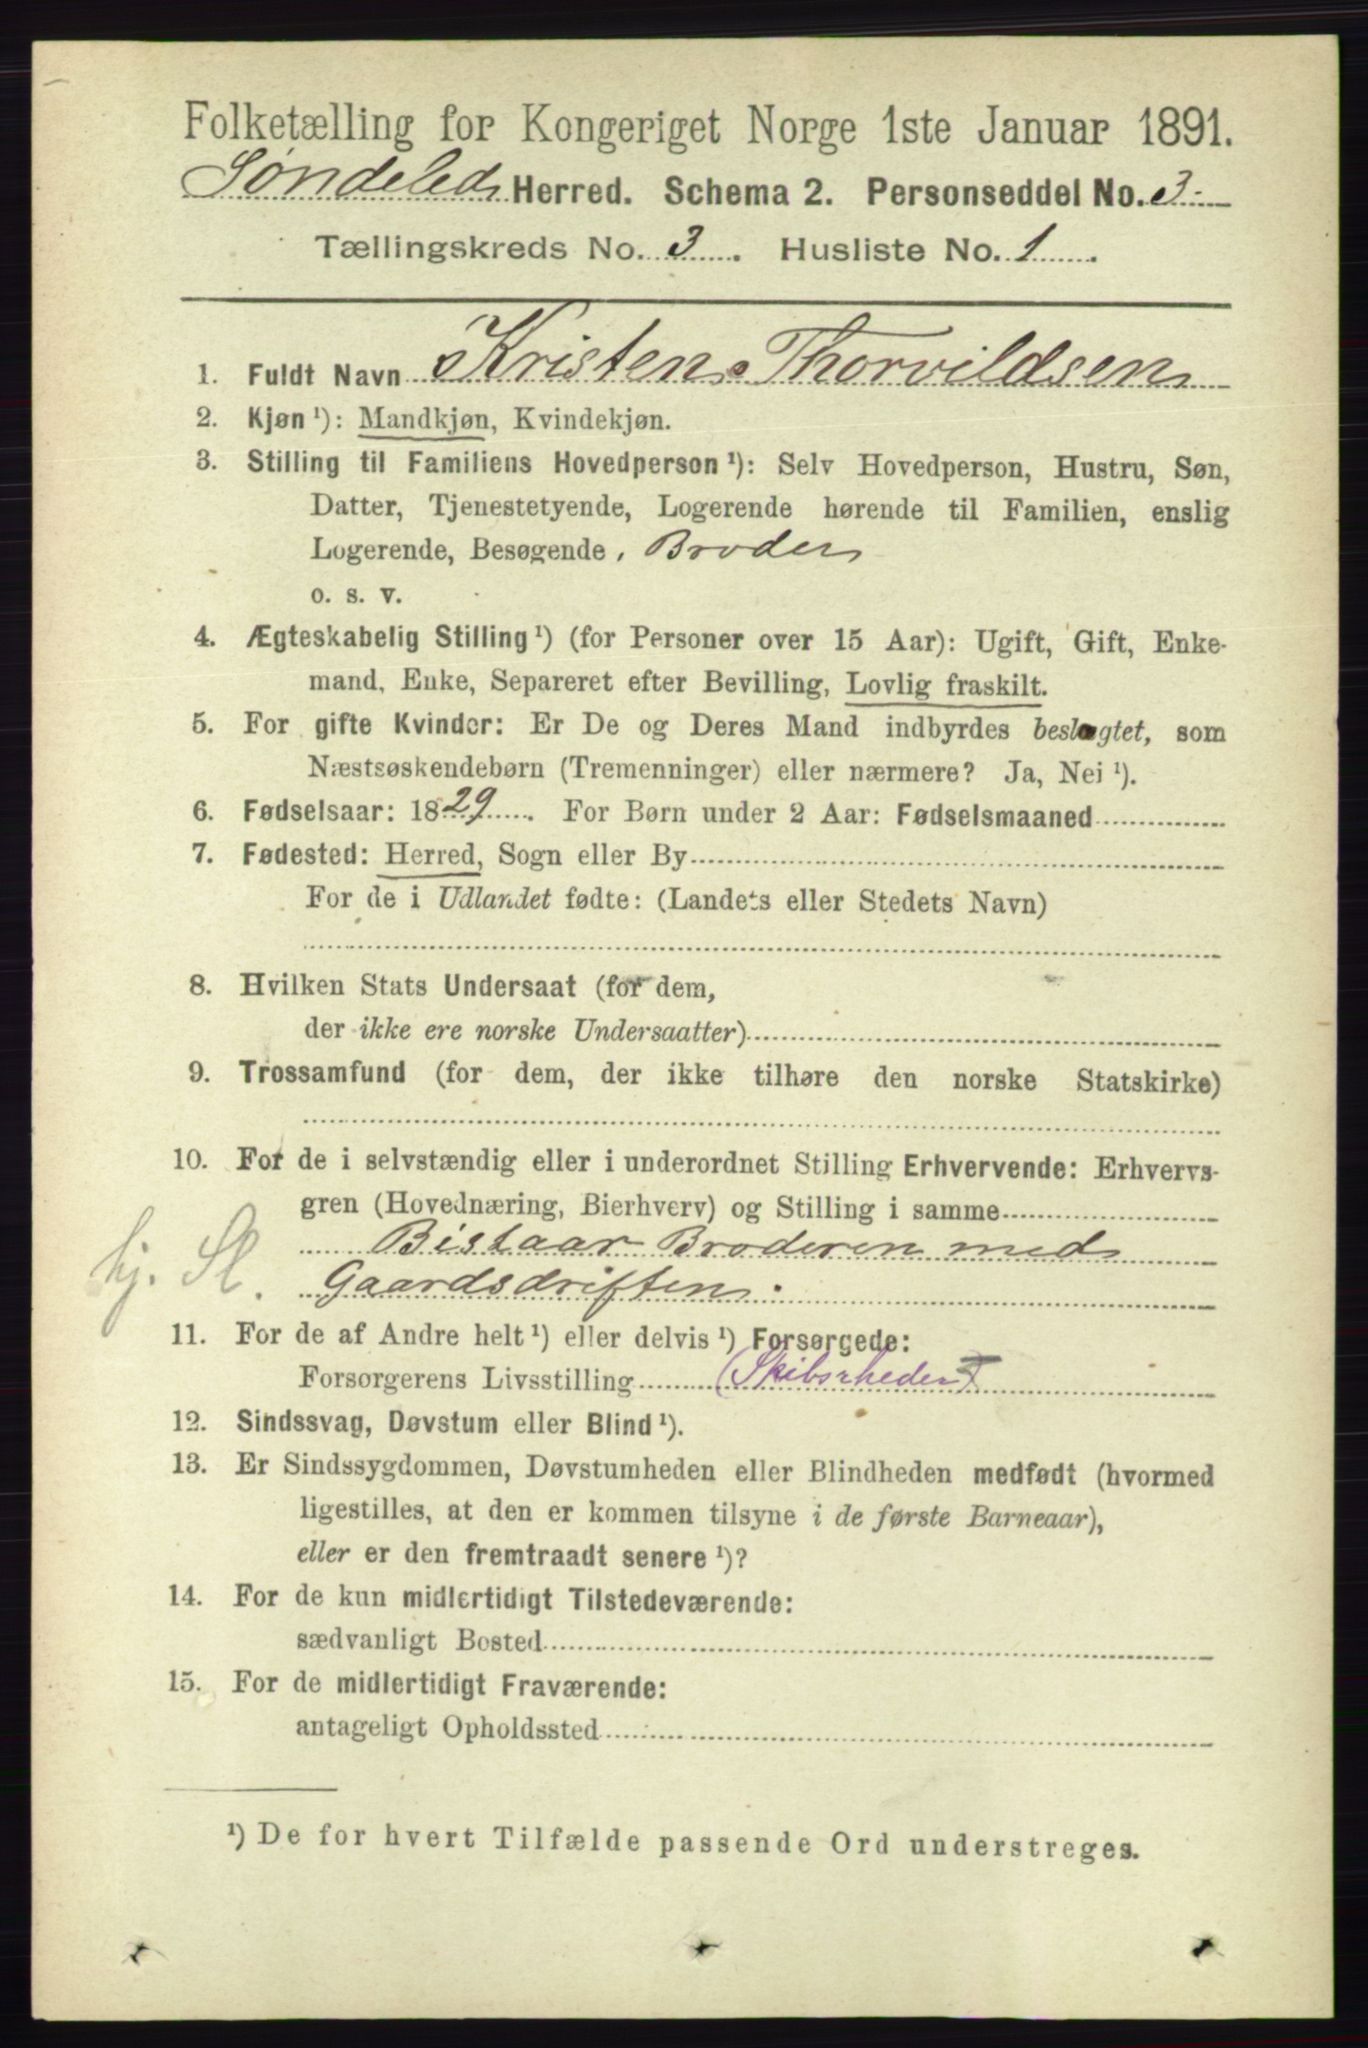 Folketælling for Kongeriget Norge 1ste Januar 1891.
Søndeled Herred. Schema 2. Personseddel No. 3
Tællingskreds No. 3. Husliste No. 1.
1. Fuldt Navn Kristen Thorvildsen
2. Kjøn ¹): Mandkjøn, Kvindekjøn.
3. Stilling til Familiens Hovedperson ¹): Selv Hovedperson, Hustru, Søn,
Datter, Tjenestetyende, Logerende hørende til Familien, enslig
Logerende, Besøgende, Broder
o. s. v.
4. Ægteskabelig Stilling ¹) (for Personer over 15 Aar): Ugift, Gift, Enke-
mand, Enke, Separeret efter Bevilling, Lovlig fraskilt.
5. For gifte Kvinder: Er De og Deres Mand indbyrdes beslægtet, som
Næstsøskendebørn (Tremenninger) eller nærmere? Ja, Nei ¹).
6. Fødselsaar: 1829. For Børn under 2 Aar: Fødselsmaaned
7. Fødested: Herred, Sogn eller By
For de i Udlandet fødte: (Landets eller Stedets Navn)
8. Hvilken Stats Undersaat (for dem,
der ikke ere norske Undersaatter)
9. Trossamfund (for dem, der ikke tilhøre den norske Statskirke)
10. For de i selvstændig eller i underordnet Stilling Erhvervende: Erhvervs-
gren (Hovednæring, Bierhverv) og Stilling i samme
Bistaar Broderen med
hj. Sl. Gaardsdriften.
11. For de af Andre helt ¹) eller delvis ¹) Forsørgede:
Forsørgerens Livsstilling (Skibsrheder
12. Sindssvag, Døvstum eller Blind ¹).
13. Er Sindssygdommen, Døvstumheden eller Blindheden medfødt (hvormed
ligestilles, at den er kommen tilsyne i de første Barneaar),
eller er den fremtraadt senere ¹)?
14. For de kun midlertidigt Tilstedeværende:
sædvanligt Bosted
15. For de midlertidigt Fraværende:
antageligt Opholdssted
¹) De for hvert Tilfælde passende Ord understreges.